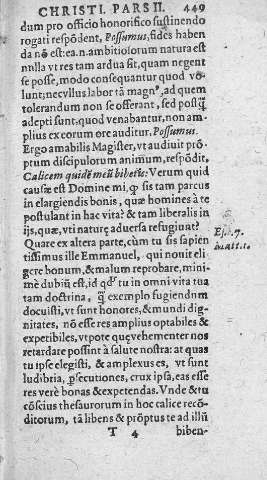 CHRISTI. PARS II. 449
dum pro officio honorifico sustinendo
rogati respōdent, Possumus, fides haben
da nō est: ea.n. ambitiosorum natura est
nulla vt res tam ardua sit, quam negent
se posse, modo consequantur quod vo
lunt; nec vllus labor tā magnꝰ, ad quem
tolerandum non se offerant, sed postq̃
adepti sunt, quod venabantur, non am
plius ex eorum ore auditur, Possumus.
Ergo amabilis Magister, vt audiuit prō
ptum discipulorum animum, respōdit,
Calicem quidē meū bibetis: Verum quid
causæ est Domine mi, ꝙ sis tam parcus
in elargiendis bonis, quæ homines à te
postulant in hac vita? & tam liberalis in
ijs, quæ, vti naturę aduersa refugiunt?
Quare ex altera parte, cùm tu sis sapien
tissimus ille Emmanuel, qui nouit eli
gere bonum, & malum reprobare, mini-
mè dubiū est, id qđ tu in omni vita tua
tam doctrina, q̃ exemplo fugiendum
docuisti, vt sunt honores, & mundi dig
nitates, nō esse res amplius optabiles &
expetibiles, vtpote quę vehementer nos
retardare possint à salute nostra: at quas
tu ipse elegisti, & amplexus es, vt sunt
ludibria, ꝑsecutiones, crux ipsa, eas esse
res verè bonas & expetendas. Vnde & tu
cōscius thesaurorum in hoc calice recō
ditorum, tā libens & prōptus te ad illū
T 4 biben-